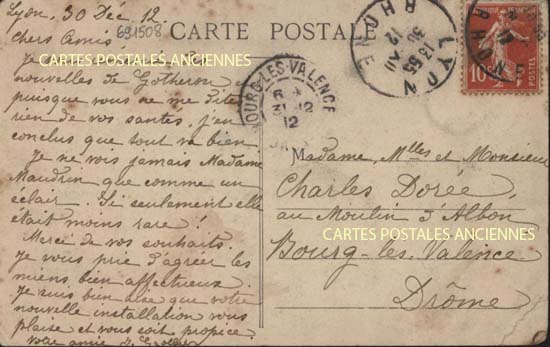 Lyon, 30 Déc 12.
691508
Chers Amis
CARTE POSTALE
CARTES POSTALES ANCIENNES
nouvelles de Gotheron
puisque vous ne me dites
rien de vos santés, j'en
conclus que tout va bien.
Je ne vois jamais Madame
Maudrin que comme un
éclair. Si seulement elle
était moins rare!
Merci de vos souhaits.
Je vous prie d'agréer les
miens bien affectueux.
Je suis bien aise que votre
nouvelle installation vous
plaise et vous soit propice.
Votre amie
BOURG-LES-VALENCE
6 *
31 -12
12
LYON
RHONE
13 55
30 XII
12
10
Madame, Mlles et Monsieur
Charles Dorée,
au Moulin d'Albon
CARTES POSTALES ANCIENNES
Bourg-les-Valence
Drôme